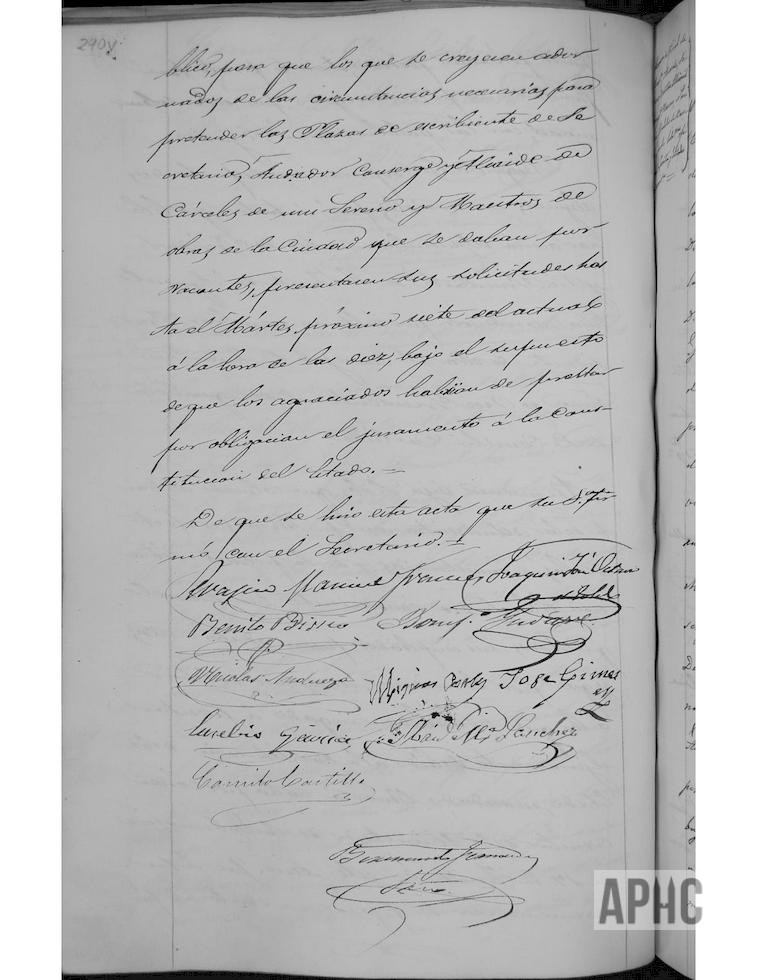 290v
blico, para que los que se creyesen ador
nados de las circunstancias necesarias para
pretender las Plazas de escribiente de Se
cretaria, Andador Conserge y Alcaide de
Cárceles de un Sereno y Maestros de
obras de la Ciudad que se daban por
vacantes, presentasen sus solicitudes has
ta el Mártes próximo siete del actual
á la hora de las diez, bajo el supuesto
de que los agraciados habian de prestar
por obligacion el juramento á la Cons-
titucion del Estado.=
De que se hizo esta acta que su S.ª fir-
mó con el Secretario.=
Manuel Joaquin José
Benito
Nicolas Andueza
Jose Gimenez
Eusebio Garcia Sanchez
Camilo Castillo
Srio.
APHC